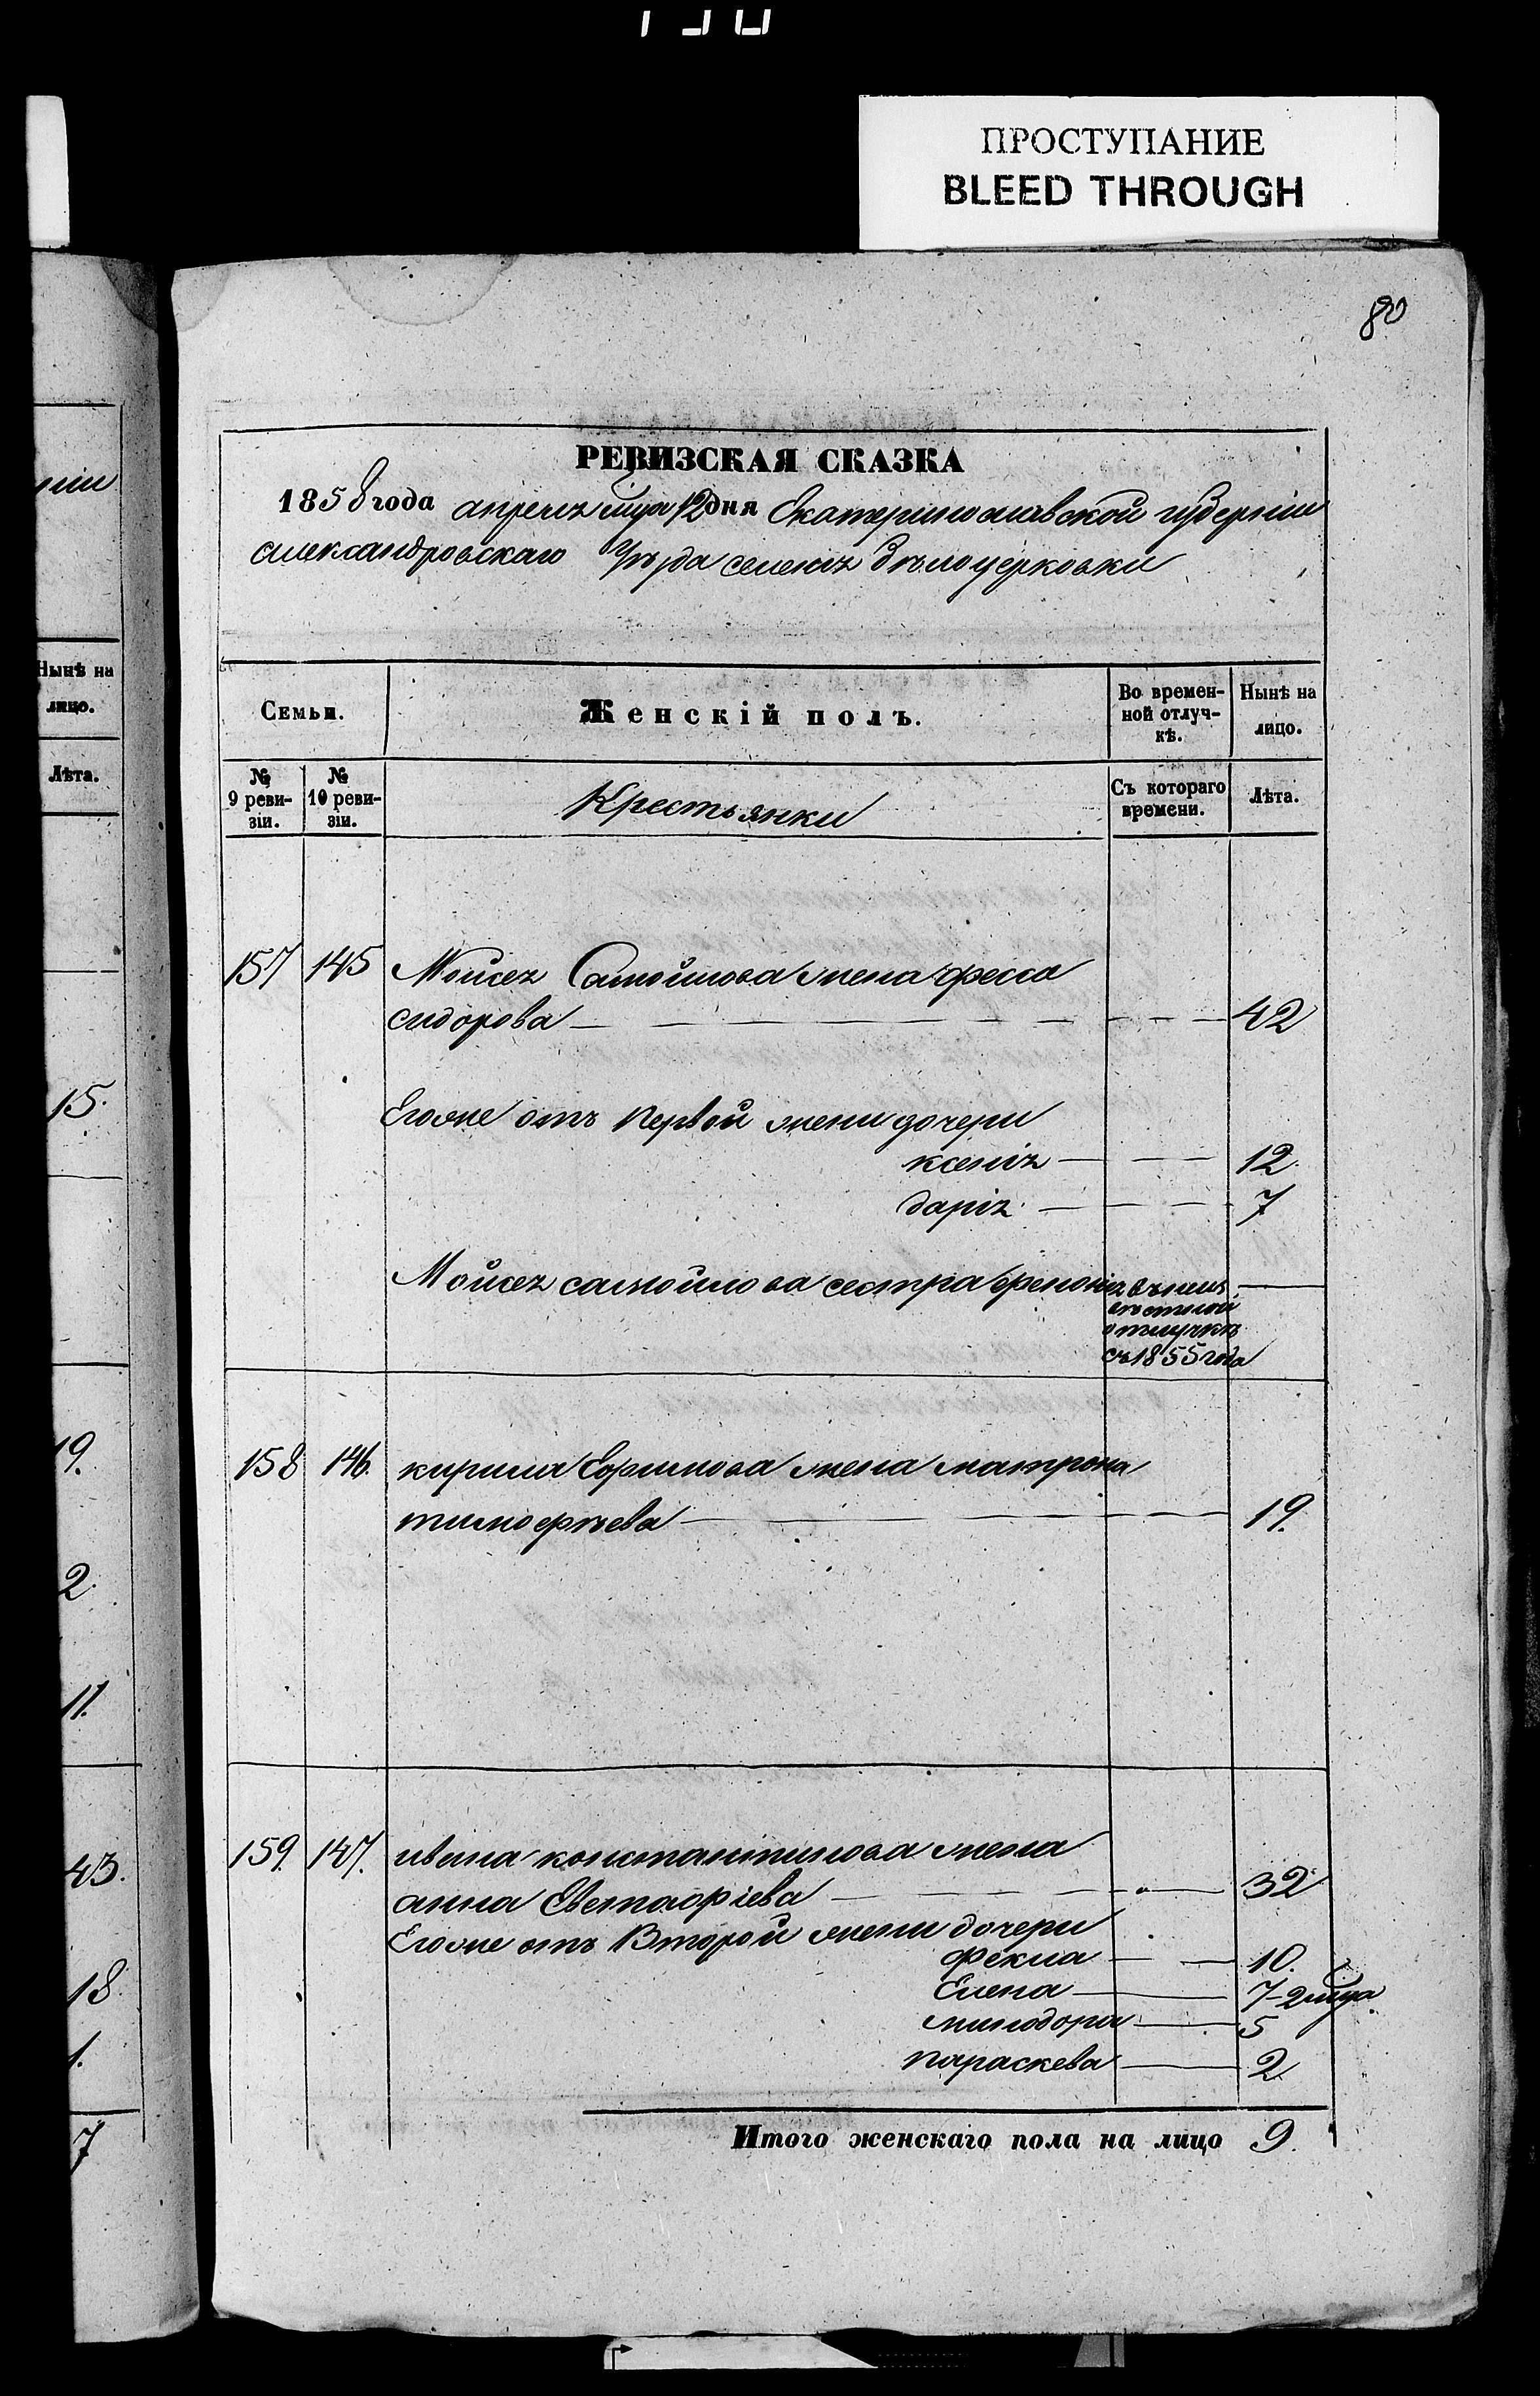 ПРОСТУПАНИЕ
BLEED THROUGH
80
РЕВИЗСКАЯ СКАЗКА
1858 года апреля мца 12 дня Екатеринославской губерніи
александровскаго Уѣзда селенія Бѣлоцерковки
Семьи.
Женскій полъ.
Во времен-
ной отлуч-
кѣ.
Нынѣ на
лицо.
№
9 реви-
зіи.
№
10 реви-
зіи.
Крестьянки
Съ котораго
времени.
Лѣта.
157 145 Мойсея Самойлова жена
сидорова 42
Егоже отъ первой жены дочери
ксенія 12
дарія 7
Мойсея самойлова сестра въ неиз
вѣстной
отлучкѣ
съ 1855 года
158 146. кирила Ефимова жена матрона
тимофѣева 19.
159. 147. ивана константинова жена
анна Евстафіева 32
Егоже отъ Второй жены дочери
Фекла 10.
Елена 7-2 мца
минодора 5
параскева 2
Итого женскаго пола на лицо 9.
ніи
Нынѣ на
лицо.
Лѣта.
15.
19.
2.
11.
43.
18.
1.
7